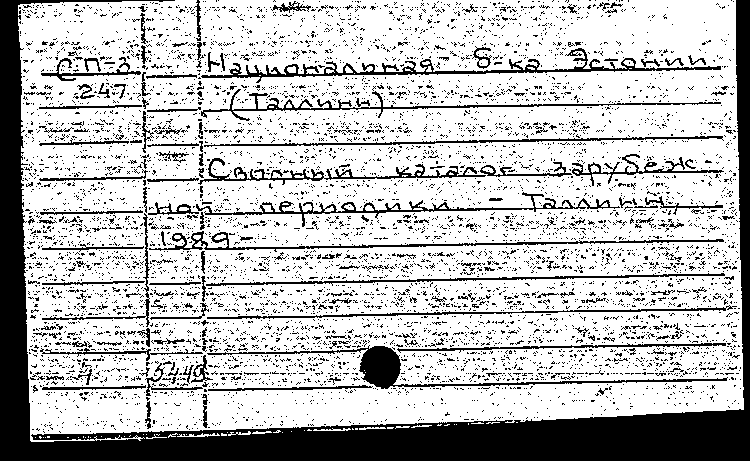 СП-3 Национальная б-ка Эстонии
247 (Таллинн)
Сводный каталог зарубеж-
ной периодики. - Таллинн,
1989 -
4 5449